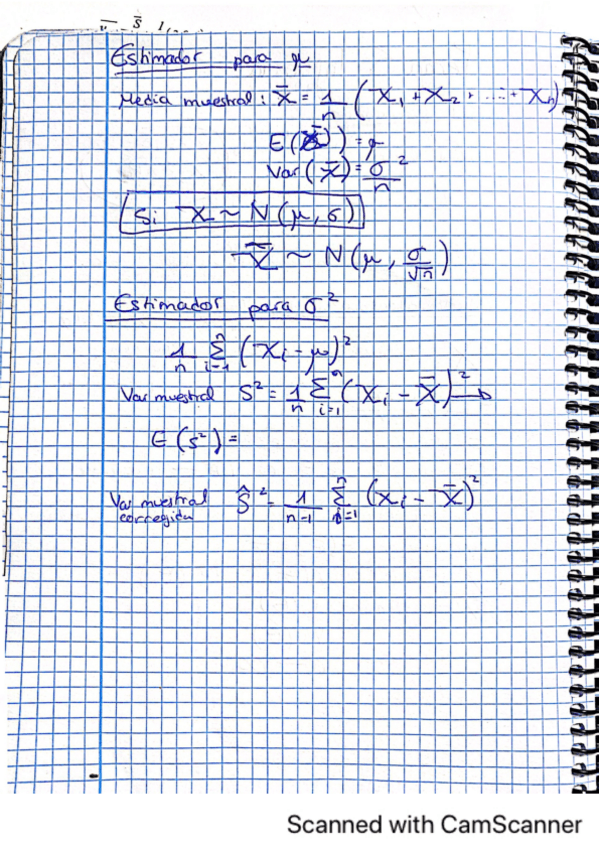 Estimador para μ
Media muestral: X̄ = 1/n (X₁ + X₂ + ... + Xₙ)
E(X̄) = μ
Var(X̄) = σ²/n
Si X ~ N(μ, σ)
X̄ ~ N(μ, σ/√n)
Estimador para σ²
1/n Σᵢ₌₁ⁿ (Xᵢ - μ)²
Var muestral S² = 1/n Σᵢ₌₁ⁿ (Xᵢ - X̄)² →
E(S²) =
Var muestral corregida Ŝ² = 1/(n-1) Σᵢ₌₁ⁿ (xᵢ - X̄)²
Scanned with CamScanner